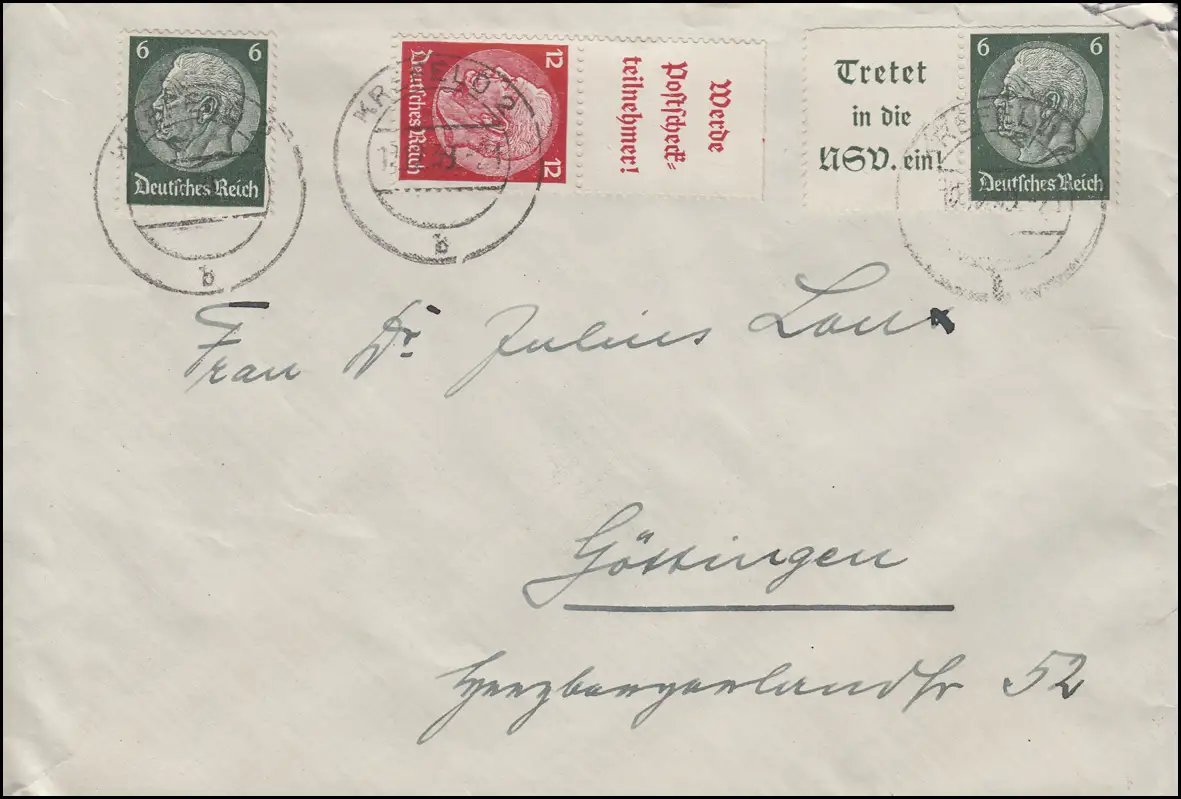 6 6
Deutsches Reich
12 12
Deutsches Reich
Werde
Postscheck=
teilnehmer!
Tretet
in die
NSV. ein!
6 6
Deutsches Reich
KREFELD 2
b
b
Frau Dr. Julius
Göttingen
Herzbergerlandstr 52